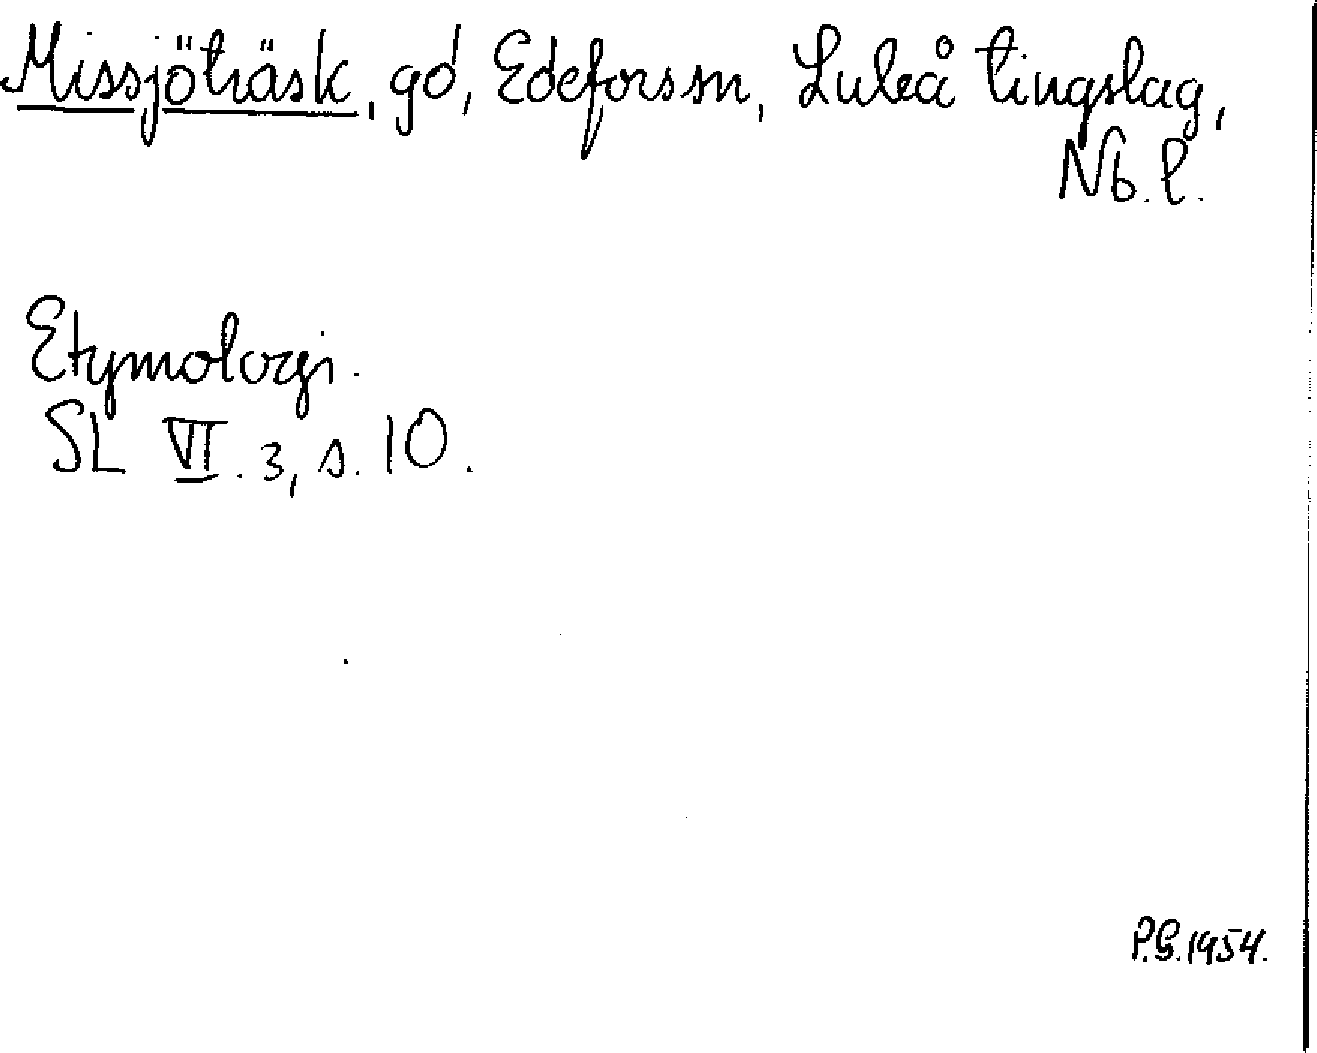 Missjöträsk, gd, Edeforssn, Luleå tingslag,
Nb. l.
Etymologi.
SL VI. 3, s. 10.
P.G. 1954.